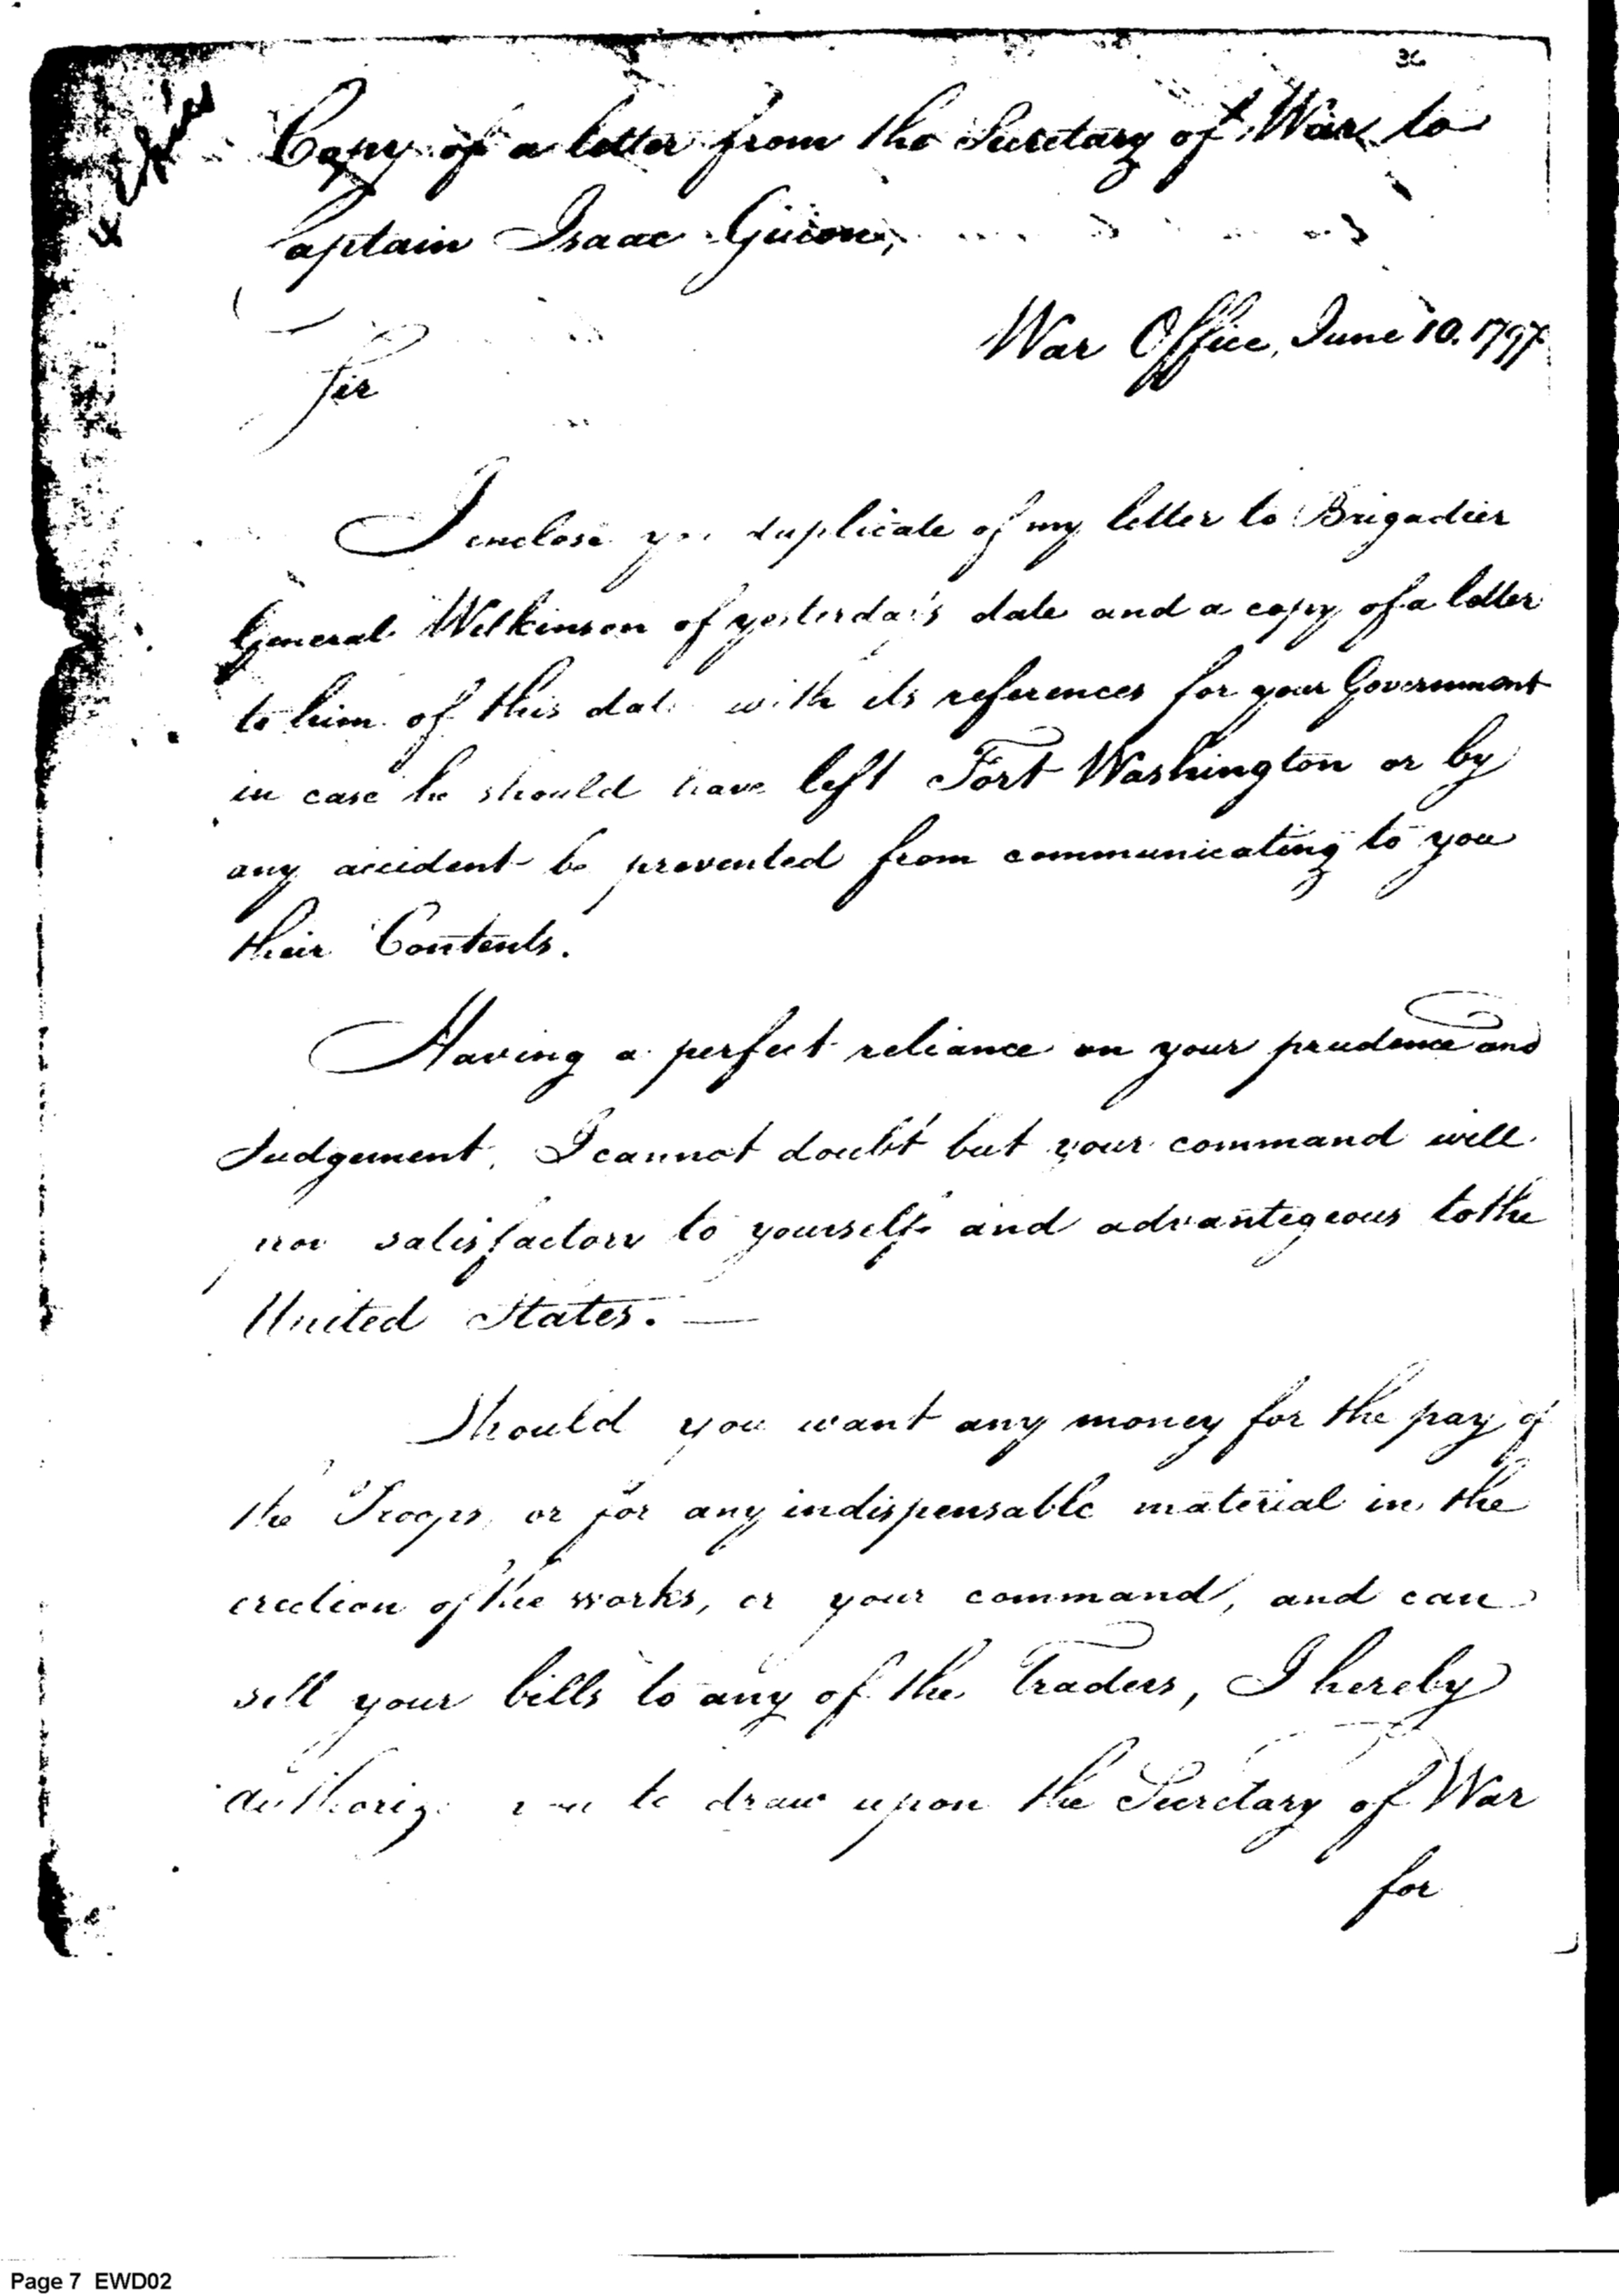 36
Copy of a letter from the Secretary of War to
Captain Isaac Guion,
War Office, June 10. 1797
Sir
I enclose you duplicate of my letter to Brigadier
General Wilkinson of yesterday's date and a copy of a letter
to him of this date with its references for your Government
in case he should have left Fort Washington or by
any accident be prevented from communicating to you
their Contents.
Having a perfect reliance on your prudence and
Judgement, I cannot doubt but your command will
prove satisfactory to yourself and advantegeous to the
United States. —
Should you want any money for the pay of
the Troops, or for any indispensable material in the
erection of the works, or your command, and can
sell your bills to any of the Traders, I hereby
authorize you to draw upon the Secretary of War
for
Page 7 EWD02